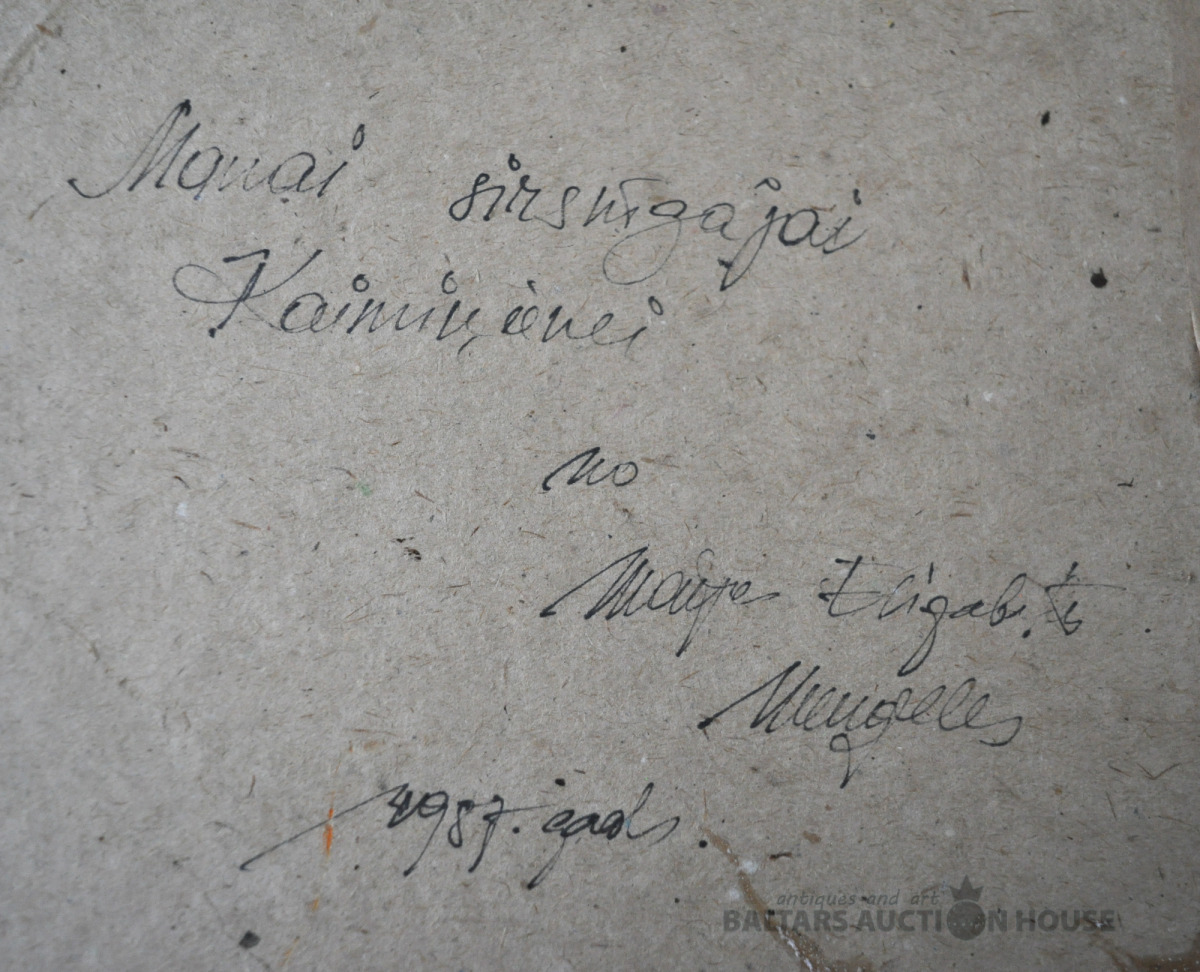 Manai sirsnīgajai
Kaimiņienei
no
Maijas Elizabetes
Mengeles
1987. gads
antiques and art
BALTARS AUCTION HOUSE